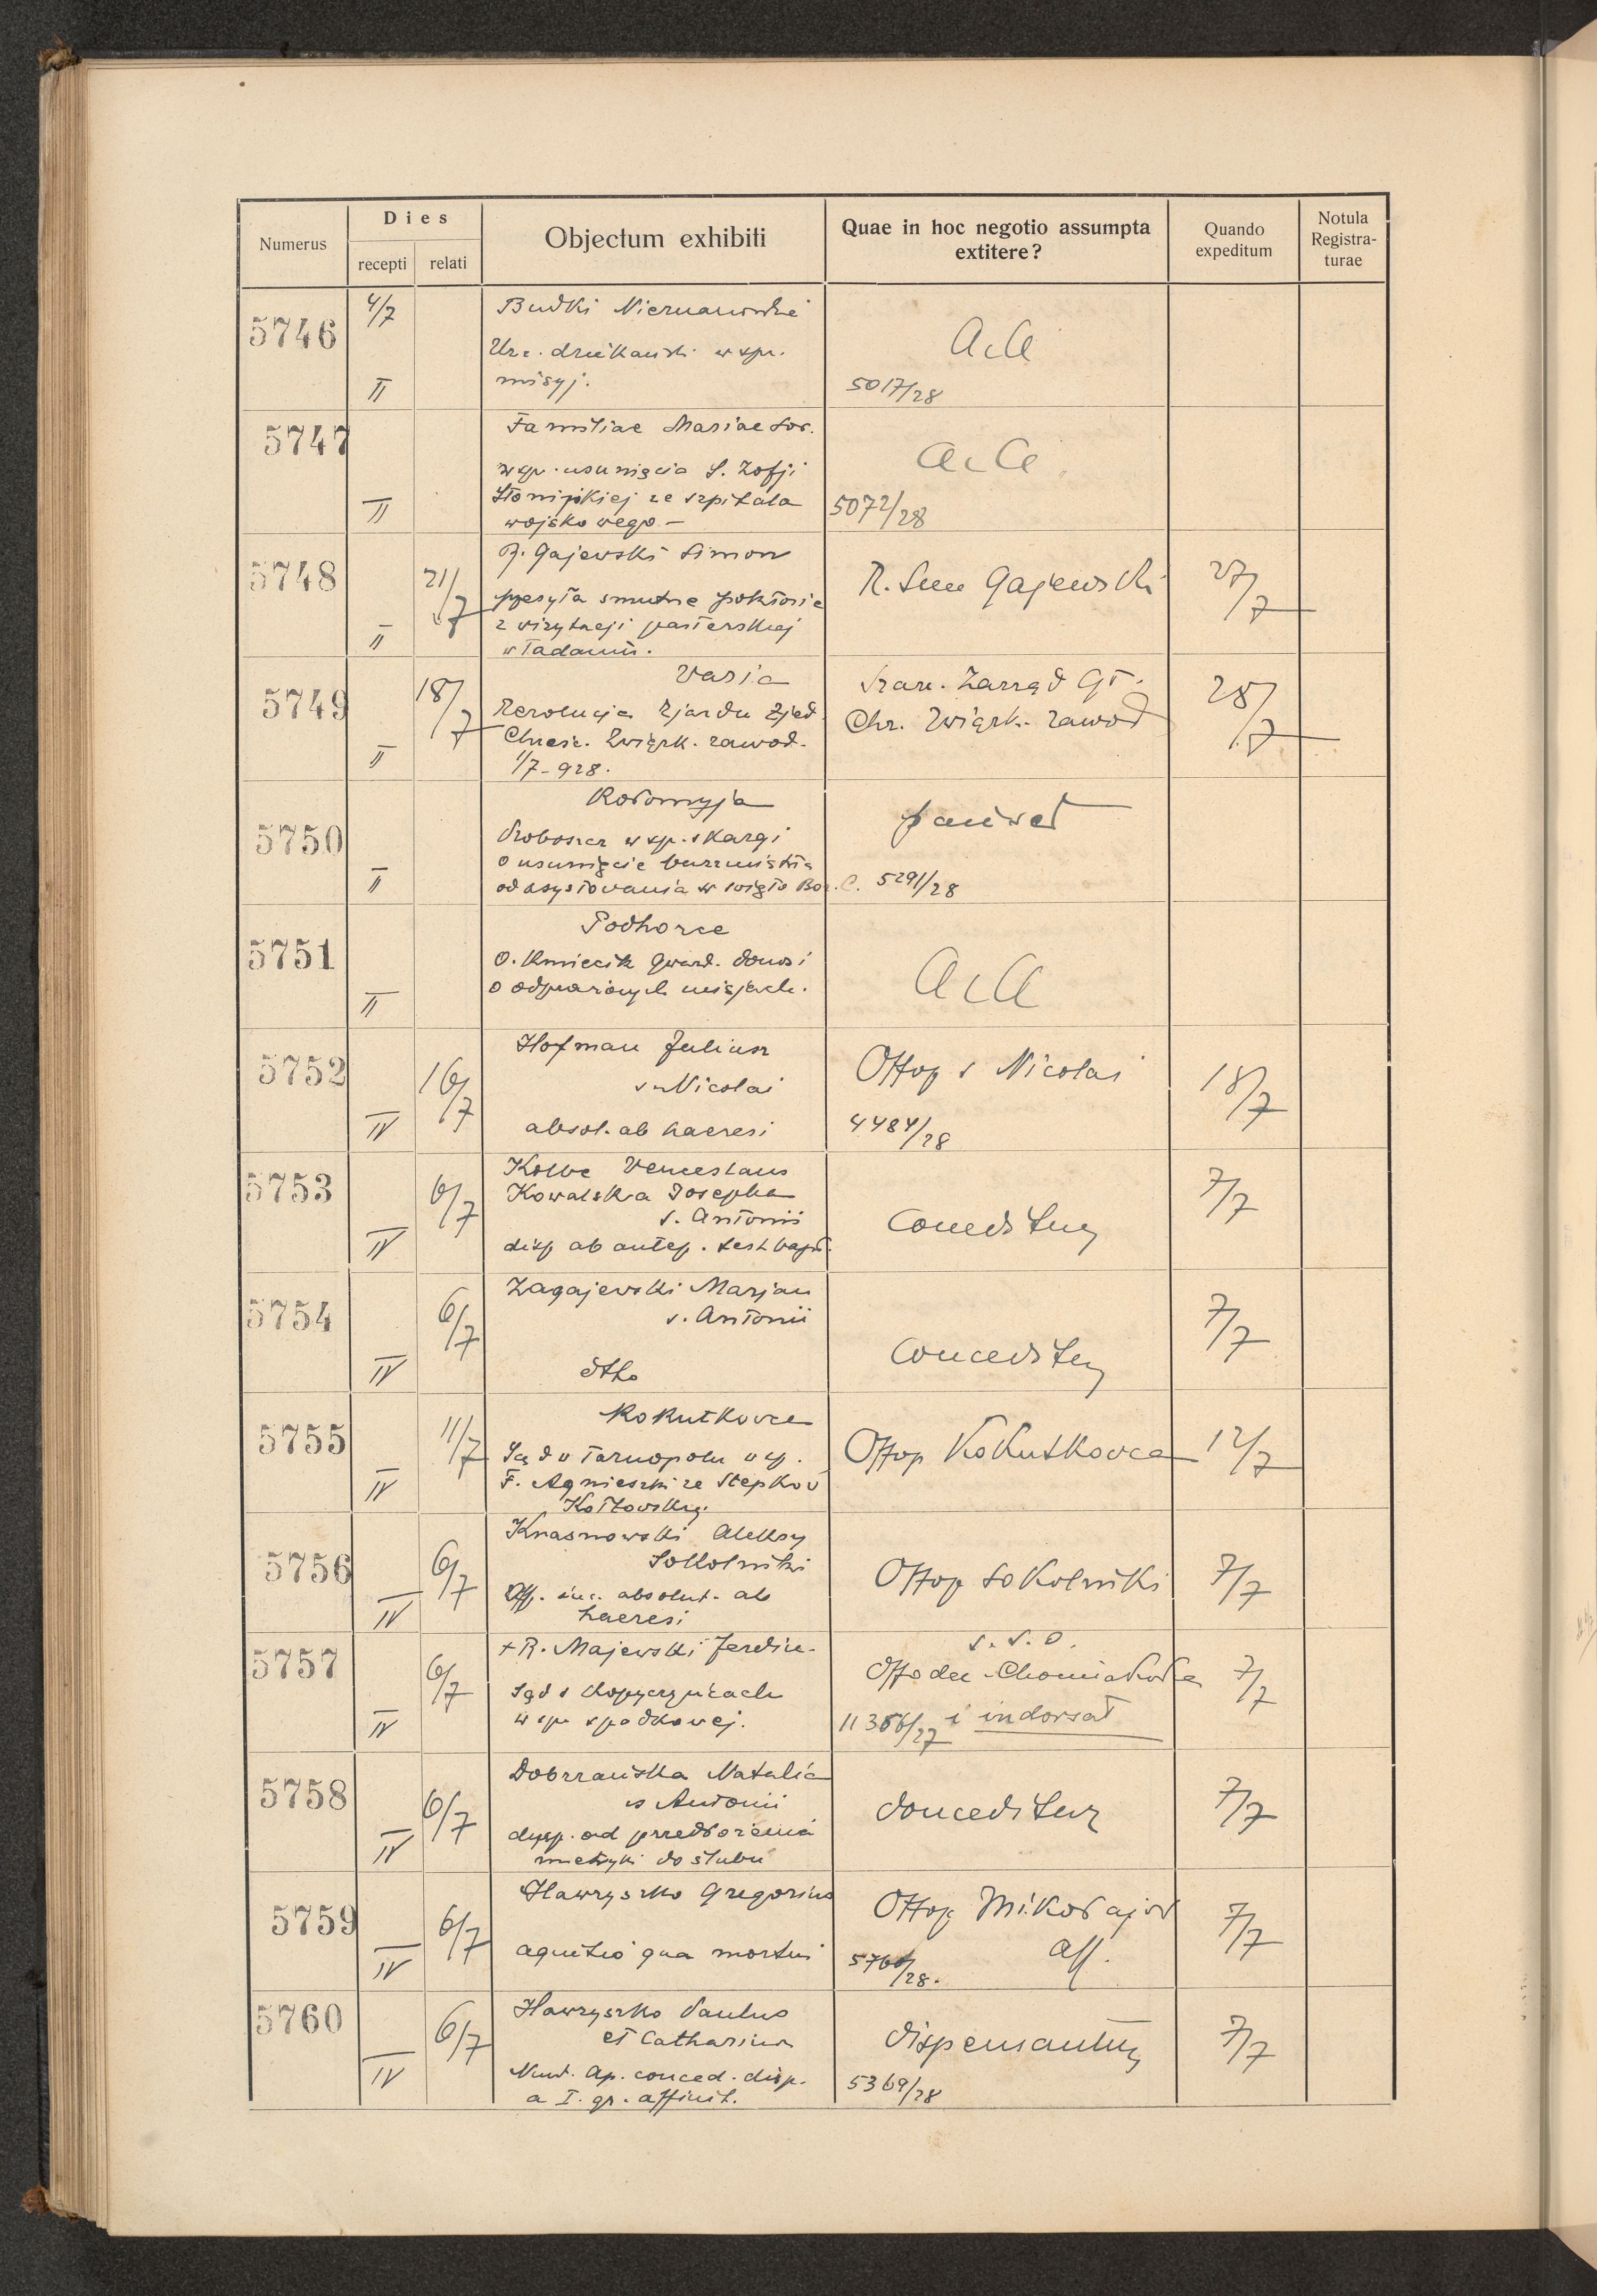 Numerus
Dies
recepti
relati
Objectum exhibiti
Quae in hoc negotio assumpta
extitere?
Quando
expeditum
Notula
Registra-
turae
5746
4/7
II
Budki
Urz. w spr.
misyj.
AcA
5017/28
5747
II
Familiae Mariae Sor.
w spr. usunięcia S. Zofji
ze szpitala
wojskowego –
AcA
5072/28
5748
21/7
II
Gajewski Simon
smutne pokłosie
z wizytacji pasterskiej
R. Gajewski
27/7
5749
18/7
II
Varia
Rezolucja Zjazdu Zjed.
Chrześc. Związk. zawod.
1/7 - 928.
Szan. Zarząd Gł.
Chr. Związk. zawod
28/7
5750
II
Kołomyja
Proboszcz w sp. skargi
o usunięcie burmistrza
od asystowania w święto Boż. C.
5291/28
5751
II
Podhorce
O. Kmiecik Gward. donosi
o odprawionych misjach.
AcA
5752
16/7
IV
Hofman Juliusz
s. Nicolai
absol. ab haeresi
Offop s Nicolai
4484/28
18/7
5753
6/7
IV
Kolbe Venceslaus
Kowalska Josepha
s. Antonii
disp ab antep. test bapt.
Conceditur
7/7
5754
6/7
IV
Zagajewski Marjan
s. Antonii
dtto
Conceditur
7/7
5755
11/7
IV
Kokutkowce
Sąd w Tarnopolu w sp.
F. Agnieszki ze Stepków
Kozłowskiej
Offop Kokutkowce
12/7
5756
6/7
IV
Krasnowski Aleksy
Sokolniki
Off. absolut. ab
haeresi
Offop Sokolniki
7/7
5757
6/7
IV
+ R. Majewski Ferdin.
Sąd w Kopyczyńcach
w spr spadkowej.
s. s. o.
Offo dec Chomiakówka
i indorsat
7/7
5758
6/7
IV
Dobrzańska Natalia
s Antonii
dysp. od przedłożenia
metryki do ślubu
Conceditur
7/7
5759
6/7
IV
Hawryszko Gregorius
agnitio qua mortui
Offop Mikołajów
All.
7/7
5760
6/7
IV
Hawryszko Paulus
et Catharina
Nunt. Ap. conced. disp.
a I. gr. affinit.
Dispensantur
5369/28
7/7